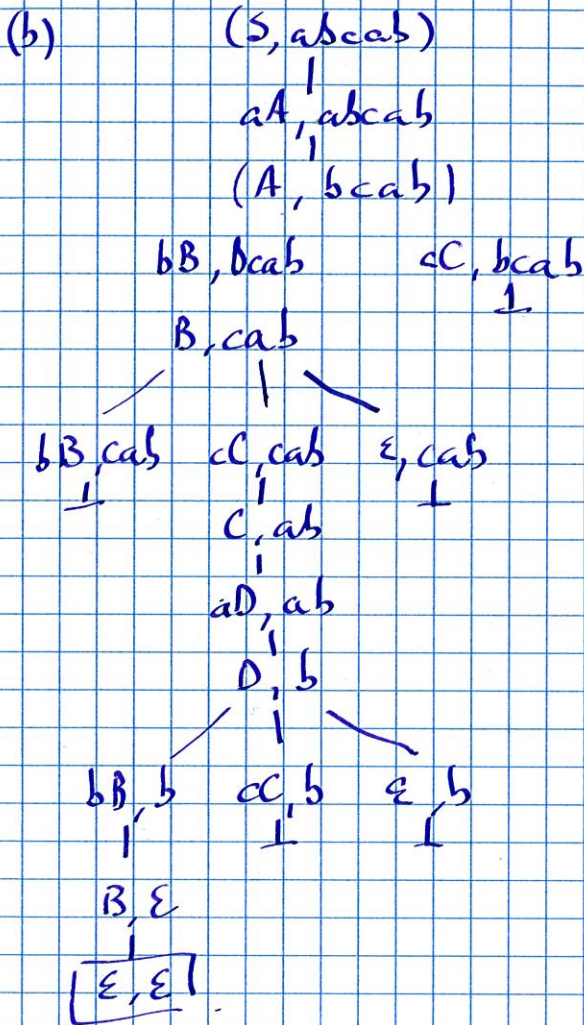 (b) (S, abcab)
aA, abcab
(A, bcab)
bB, bcab cC, bcab
⊥
B, cab
bB, cab cC, cab ε, cab
⊥ ⊥
C, ab
aD, ab
D, b
bB, b cC, b ε, b
⊥ ⊥
B, ε
ε, ε